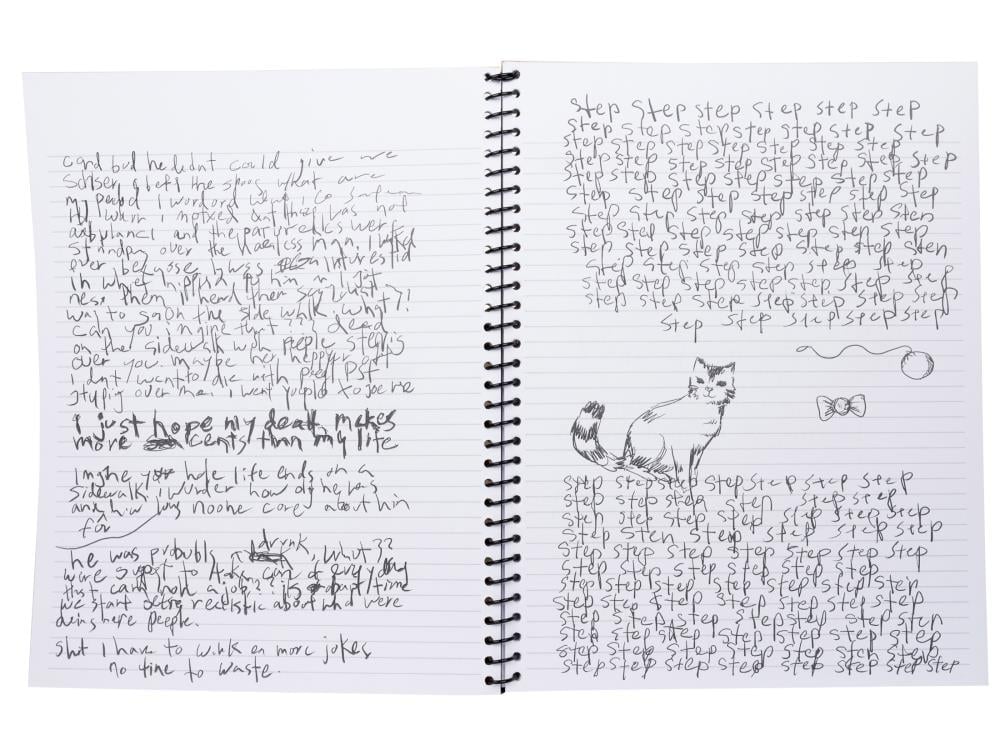 card but he didnt could give me
the what are
my period I
it when i notised out there was not
ambulance and the paramedics were
standing over the homless man. I walked
over becguse I was interestid
in what happind to him in
ness them I heard them say
was to on the side walk. why?!
can you imgine that??? dead
on the sidewalk with people steping
over you. maybe her happyer off?
i dont want to die with peopl just
stypig over me. I want people to see me
i just hope my death makes
more cents than my life
Imghe your hole life ends on a
sidewalk. i wunder how old he was
and how long noone cared about him
for
he was probubly drunk, what??
were supost to taken care of every guy
that cant hold a job?? its about time
we start being reelistic about what were
doing here people.
shit I have to wilk on more jokes
no time to waste.
step step step step step step
step step step step step step step
step step step step step step step
step step step step step step step step
step step step step step step step
step step step step step step step
step step step step step step step
step step step step step step step
step step step step step step step
step step step step step step
step step step step step step step
step step step step step step step
step step step step step
step step step step step step step
step step step step step step
step step step step step step step
step sten step step step step step
step step step step step step step
step step step step step step step
step step step step step step step
step step step step step step step
step step step step step step step
step step step step step step step
step step step step step step step
step step step step step step step step